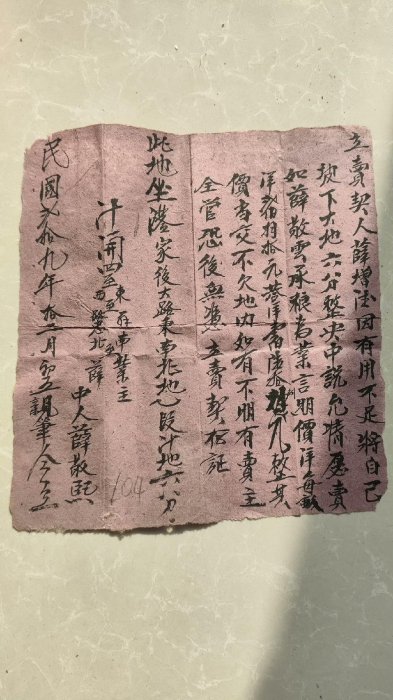 立賣契人薛增法因有用不足將自己
地下大地六八分整央中說允情愿賣
如薛敬雲承糧為業言明價洋每畝
洋貳佰 拾元共洋 整其
價當交不欠地內如有不明有賣主
全管恐後無憑立賣契存証
此地坐 家後大路東 北地 段計地六八分
計開四至
東 業主
北 薛
中人薛敬熙
民國貳拾九年拾二月 親筆人 立
104